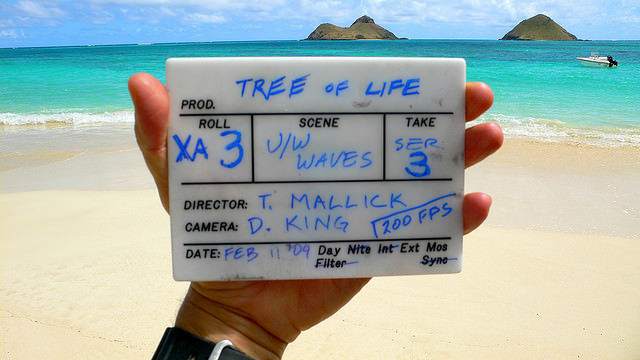 PROD. TREE OF LIFE
ROLL SCENE TAKE
XA 3 U/W WAVES SER 3
DIRECTOR: T. MALLICK
CAMERA: D. KING 200 FPS
DATE: FEB 11 '09 Day Nite Int Ext Mos
Filter Sync